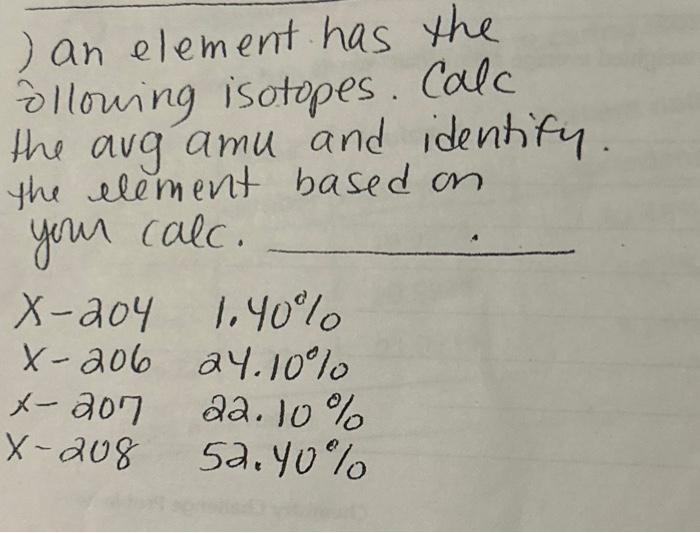 ) an element has the
ollowing isotopes. Calc
the avg amu and identify.
the element based on
your calc. ____________.
X-204 1.40%
X-206 24.10%
X-207 22.10%
X-208 52.40%